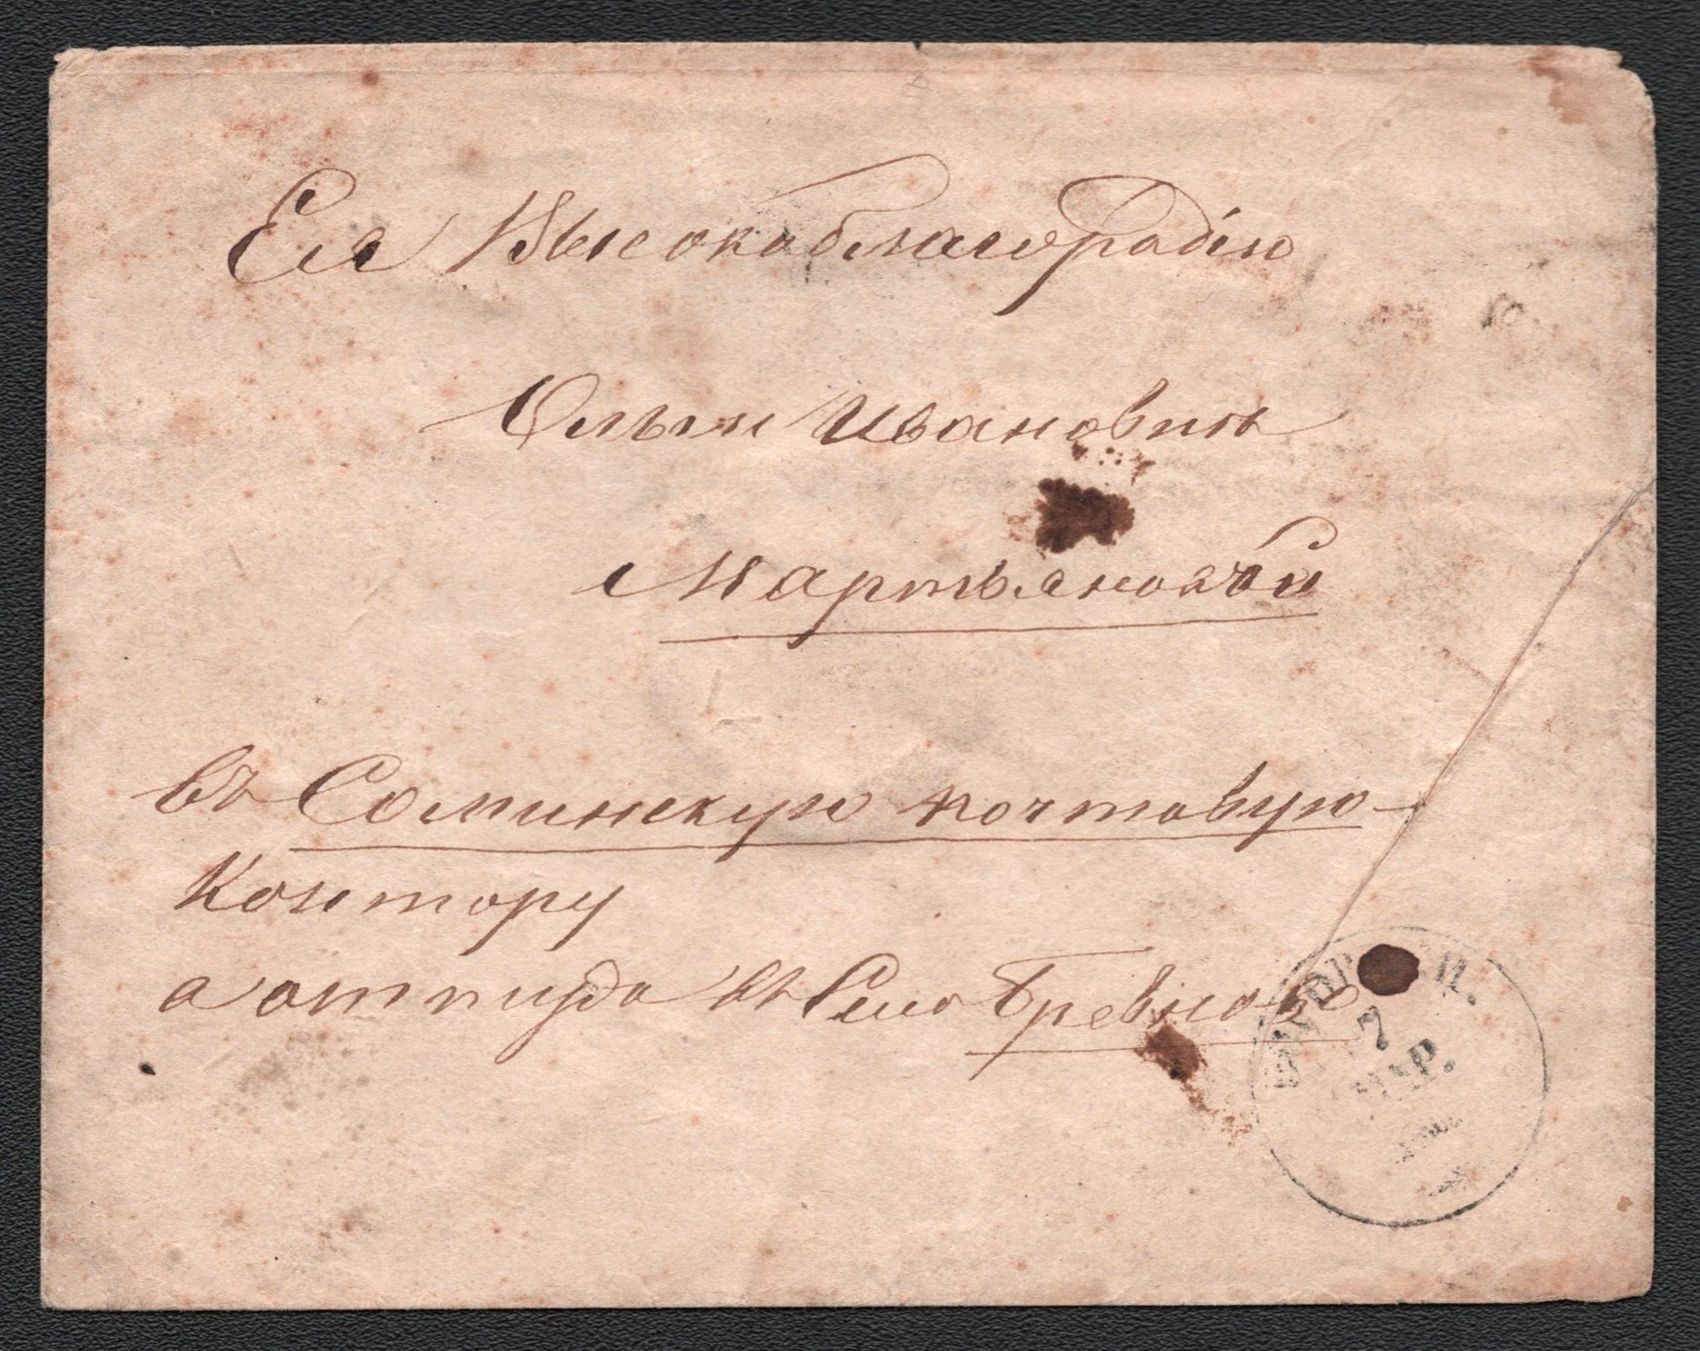 Ея Высокоблагородію
Ольгѣ Ивановнѣ
Мартьяновой
въ Соминскую почтовую
Контору
а оттуда въ Село Бревново
7
МАР.